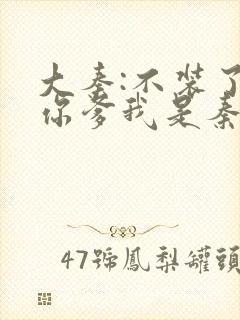 大秦:不装了
你爹我是秦
47號鳳梨罐頭